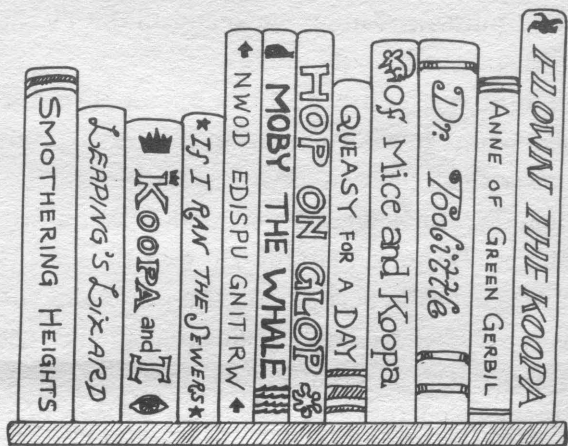 SMOTHERING HEIGHTS
LEAPING'S LIZARD
KOOPA and I
IF I RAN THE SEWERS
NWOD EDISPU GNITIRW
MOBY THE WHALE
HOP ON GLOP
QUEASY FOR A DAY
Of Mice and Koopa
Dr. Toolittle
ANNE OF GREEN GERBIL
FLOWN THE KOOPA